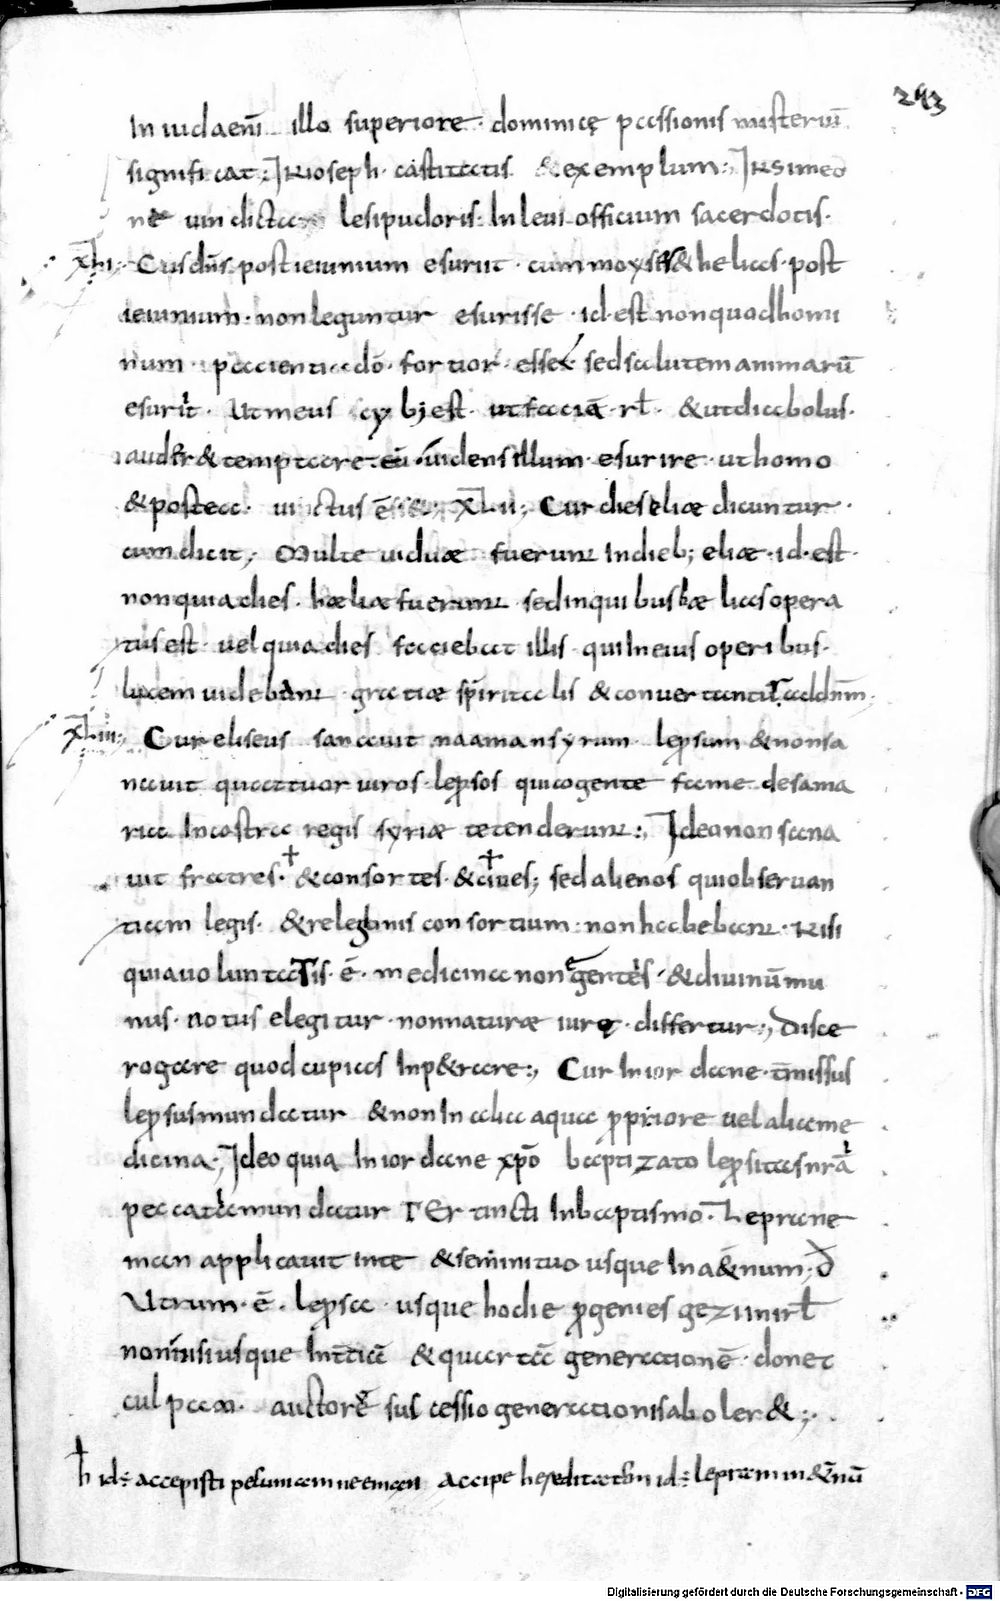 293
In iudaem̄ illo superiore · dominicę passionis misteriū
significat :, In ioseph · castitatis & exemplum :, In simeo
ne uindicta lesi pudoris : In leui officium sacerdotis ·
XLI :, Cur dn̄s post ieiunium esuriit · cum moyses & helias · post
ieiunium · non leguntur esurisse · id · est non quod homi
num · pacienti a dō · fortior · esset sed salutem animarū
esurit · Ut meus cybus est · ut faciā · rł · & ut diabolus ·
auder& temptare · eū · uidens illum · esurire · ut homo
& postea · uictus ē·s& :, XLII :, Cur dies eliæ dicuntur ·
cum dicit :, Multe uiduæ fuerunt In dieb; eliæ · id · est ·
non quia dies · hæliæ fuerunt · sed in quibus hæ lias opera
tus est · uel quia dies faciebat illis · qui In eius operibus ·
lucem uidebant · gratiæ spiritalis & conuertantur ad dnm̄ ·
XLIII :, Cur eliseus sanauit naaman syrum lep̱sum & non sa
nauit quattuor uiros · lep̱sos qui cogente fame de sama
ria In castra regis syriæ tetenderunt :, Ideo non sana
uit fratres · & consortes · & ciues ; sed alienos qui obseruan
tiam legis · & relegionis consortium · non habebant · Nisi
quia uoluntatis · ē · medicina non gentes · & diuinū mu
nus · uotus elegitur · non naturæ iure · differtur :, Disce
rogare quod cupias Inp&rare :, Cur In iordane · tm̄issus
lep̱sus mundatur & non In alia aqua p̱priore uel alia me
dicina :, Ideo quia In iordane xp̄o baptizato lep̱sitas nr̄a
peccati mundatur TEr tincti In baptismo · Lepra ne
man applicauit in te & semini tuo usque In a&̄num ;
Utrum · ē · lep̱sa · usque hodie p̱genies gezi uiri rł
non nisi usque In t̄ciā & quartā generationē · donec
culpam · auctorē successio generationis aboler& :,
h id÷ accepisti pecuniam neeman accipe hereditatem id÷ lepram in &̄nū
Digitalisierung gefördert durch die Deutsche Forschungsgemeinschaft - DFG